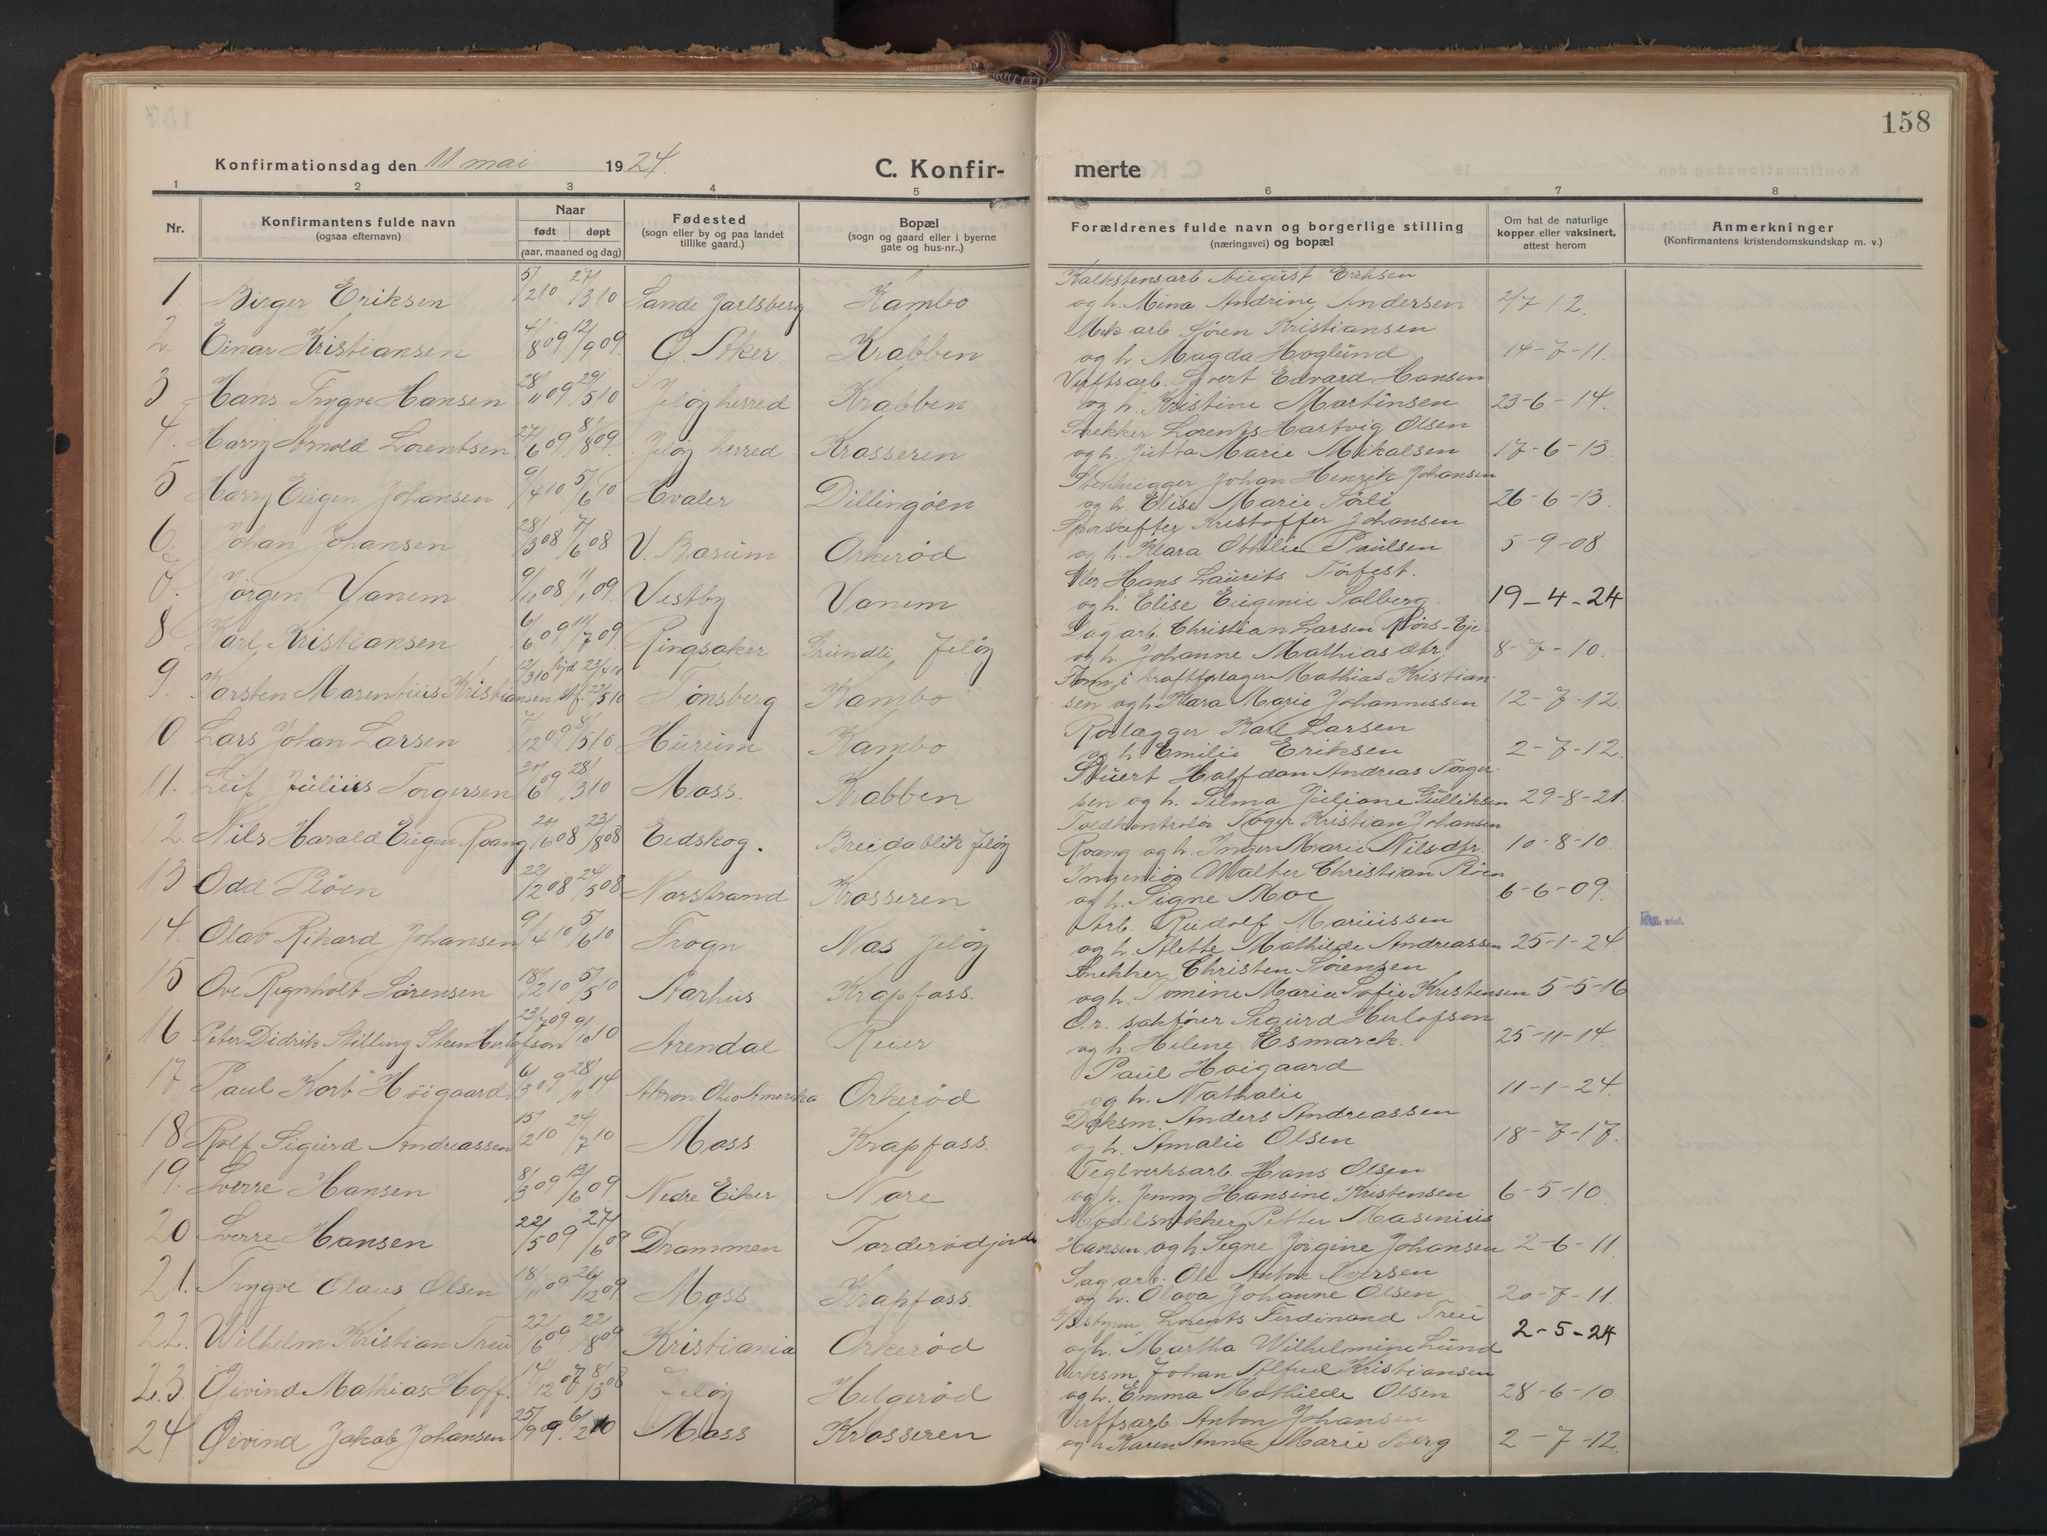 158
Konfirmationsdag den 11 mai 1924.
C. Konfirmerte
1 2 3 4 5 6 7 8
Nr. Konfirmantens fulde navn (ogsaa efternavn) Naar født døpt (aar, maaned og dag) Fødested (sogn eller by og paa landet tillike gaard.) Bopæl (sogn og gaard eller i byerne gate og hus-nr.,) Forældrenes fulde navn og borgerlige stilling (næringsvei) og bopæl Om hat de naturlige kopper eller vaksinert, attest herom Anmerkninger (Konfirmantens kristendomskundskap m. v.)
1 Birger Eriksen 5/12 10 27/3 10 Sande Jarlsberg Kambo Kalkstensarb August Eriksen
og h. Mina Andrine Andersen 2/7 12.
2. Einar Kristiansen 4/8 09 12/9 09. Ø. Aker. Krabben Mek arb Søren Kristiansen
og h. Magda Hoglund 14-7-11.
3 Hans Trygve Hansen 28/11 09 29/5 10 Jeløy herred Krabben Verftsarb. Syvert Edvard Hansen
og h. Kristine Martinsen 23-6-14.
4. Harry Arnold Lorentsen 27/6 09 8/8 09. Jeløy herred Krosseren Snekker Lorents Hartvig Olsen
og h. Jutta Marie Mikalsen 17-6-13.
5 Harry Eugen Johansen 9/4 10 5/6 10 Hvaler Dillingøen Stenhugger Johan Henrik Johansen
og h. Elise Marie Sørli 26-6-13.
6. Johan Johansen 28/3 08 7/6 08 V. Bærum Orkerød Kristoffer Johansen
og h. Klara Othilie Paulsen 5-9-08
7. Jørgen Vanem 9/11 08 11/1 09. Vestby Vanem Hans Laurits Torfest.
og h. Elise Eugenie Solberg. 19-4-24
8 Karl Kristiansen 6/6 09 11/7 09 Ringsaker Grundli Jeløy Sag arb. Christian Larsen
og h. Johanne Mathiasdtr. 8-7-10.
9. Karsten Marentius Kristiansen 12/3 10 hjd 23/4 10 st f. 22/5 10 Tønsberg Kambo Form. i kraftforlager Mathias Kristian-
sen og h Klara Marie Johannessen 12-7-12.
10 Lars Johan Larsen 7/12 09 8/5 10 Hurum Kambo Rørlægger Karl Larsen
og h Emilie Eriksen 2-7-12.
11. Leif Julius Torgersen 30/6 09 28/3 10 Moss. Krabben Stuert Halfdan Andreas Torger-
sen og h. Selma Juliane Gulliksen 29-8-21.
12. Nils Harald Eugen Roang 20/6 08 23/8 08 Eidskog. Breidablik Jeløy Toldkontrolør Toger Kristian Johansen
Roang og h. Inger Marie Nilsdtr. 10-8-10.
13 Odd Pløen 22/12 08 24/5 08 Norstrand Krosseren Ingeniør Walter Christian Pløen
og h. Signe Moe 6-6-09.
14. Olav Rikard Johansen 9/4 10 5/6 10 Frogn Nas Jeløy Arb. Rudolf Mariussen
og h. Alette Mathilde Andreassen 25-1-24
15 Ove Regnholt Sørensen 18/2 10 5/5 10 Aarhus Krapfoss. Snekker Christen Sørensen
og h. Tomine Marie Sofie Kristensen 5-5-16
16 Peter Didrik Stilling Steen Herlofson 23/7 09 9/10 10 Arendal Reier O.r. sakfører Sigurd Herlofson
og h. Helene Esmarck. 25-11-14.
17 Paul Kort Höigaard 6/3 09 28/11 14 Akron Ohio Amerika Orkerød Paul Höigaard
og h. Nathalie 11-1-24.
18 Rolf Sigurd Andreassen 15/2 10 24/7 10 Moss Krapfoss. Doksm. Anders Andreassen
og h. Amalie Olsen 18-7-17.
19. Sverre Hansen 8/3 09 13/6 09 Nedre Eiker Nore Teglverksarb Hans Olsen
og h. Jenny Hansine Kristensen 6-5-10.
20 Sverre Hansen 22/5 09 27/6 09 Drammen Torderødjorde Modelsnekker Petter Masenius
Hansen og h Signe Jørgine Johansen 2-6-11.
21. Trygve Olaus Olsen 18/11 09 26/12 09 Moss Krapfoss. Sag arb. Ole Anton Iversen
og h. Olava Johanne Olsen 20-7-11.
22. Wilhelm Kristian Treu 22/6 09 22/8 09 Kristiania Orkerød Lorents Ferdinand Treu
og h. Martha Wilhelmine Lund 2-5-24
23. Øivind Mathias Hoff. 14/12 07 8/3 08 Jeløy Helgerød Verksm Johan Alfred Kristiansen
og h. Emma Mathilde Olsen 28-6-10
24. Øivind Jakob Johansen 25/9 09. 6/2 10 Moss Krosseren Verftsarb. Anton Johansen
og h Karen Anna Marie Berg 2-7-12.